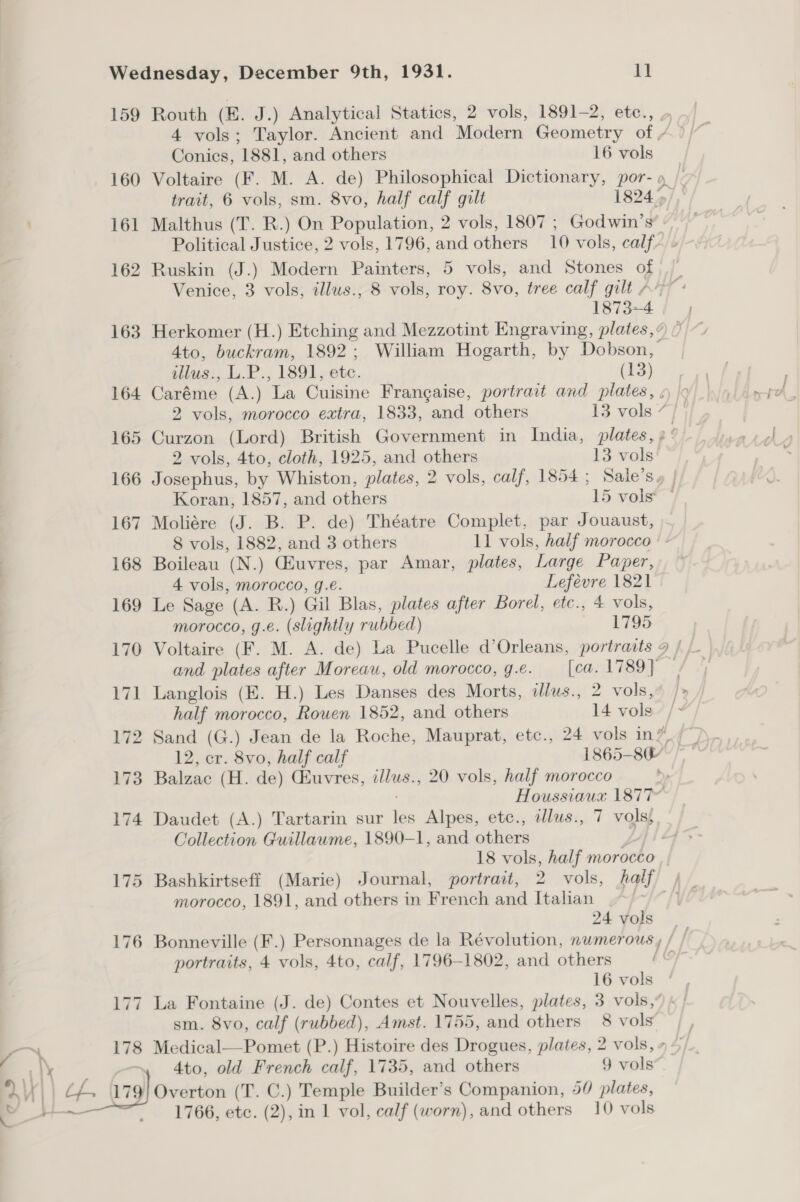 Wednesday, December 9th, 1931. 11
159 Routh (E. J.) Analytical Statics, 2 vols, 1891–2, etc.,
4 vols; Taylor. Ancient and Modern Geometry of
Conics, 1881, and others 16 vols
160 Voltaire (F. M. A. de) Philosophical Dictionary, por-
trait, 6 vols, sm. 8vo, half calf gilt 1824
161 Malthus (T. R.) On Population, 2 vols, 1807 ; Godwin's
Political Justice, 2 vols, 1796, and others 10 vols, calf
162 Ruskin (J.) Modern Painters, 5 vols, and Stones of
Venice, 3 vols, illus., 8 vols, roy. 8vo, tree calf gilt
1873–4
163 Herkomer (H.) Etching and Mezzotint Engraving, plates,
4to, buckram, 1892 ; William Hogarth, by Dobson,
illus., L.P., 1891, etc. (13)
164 Carême (A.) La Cuisine Française, portrait and plates,
2 vols, morocco extra, 1833, and others 13 vols
165 Curzon (Lord) British Government in India, plates,
2 vols, 4to, cloth, 1925, and others 13 vols
166 Josephus, by Whiston, plates, 2 vols, calf, 1854 ; Sale's
Koran, 1857, and others 15 vols
167 Molière (J. B. P. de) Théatre Complet, par Jouaust,
8 vols, 1882, and 3 others 11 vols, half morocco
168 Boileau (N.) Œuvres, par Amar, plates, Large Paper,
4 vols, morocco, g.e. Lefèvre 1821
169 Le Sage (A. R.) Gil Blas, plates after Borel, etc., 4 vols,
morocco, g.e. (slightly rubbed) 1795
170 Voltaire (F. M. A. de) La Pucelle d'Orleans, portraits
and plates after Moreau, old morocco, g.e. [ca. 1789]
171 Langlois (E. H.) Les Danses des Morts, illus., 2 vols,
half morocco, Rouen 1852, and others 14 vols
172 Sand (G.) Jean de la Roche, Mauprat, etc., 24 vols in
12, cr. 8vo, half calf 1865–80
173 Balzac (H. de) Œuvres, illus., 20 vols, half morocco
Houssiaux 1877
174 Daudet (A.) Tartarin sur les Alpes, etc., illus., 7 vols,
Collection Guillaume, 1890–1, and others
18 vols, half morocco
175 Bashkirtseff (Marie) Journal, portrait, 2 vols, half
morocco, 1891, and others in French and Italian
24 vols
176 Bonneville (F.) Personnages de la Révolution, numerous
portraits, 4 vols, 4to, calf, 1796–1802, and others
16 vols
177 La Fontaine (J. de) Contes et Nouvelles, plates, 3 vols,
sm. 8vo, calf (rubbed), Amst. 1755, and others 8 vols
178 Medical—Pomet (P.) Histoire des Drogues, plates, 2 vols,
4to, old French calf, 1735, and others 9 vols
179 Overton (T. C.) Temple Builder's Companion, 50 plates,
1766, etc. (2), in 1 vol, calf (worn), and others 10 vols